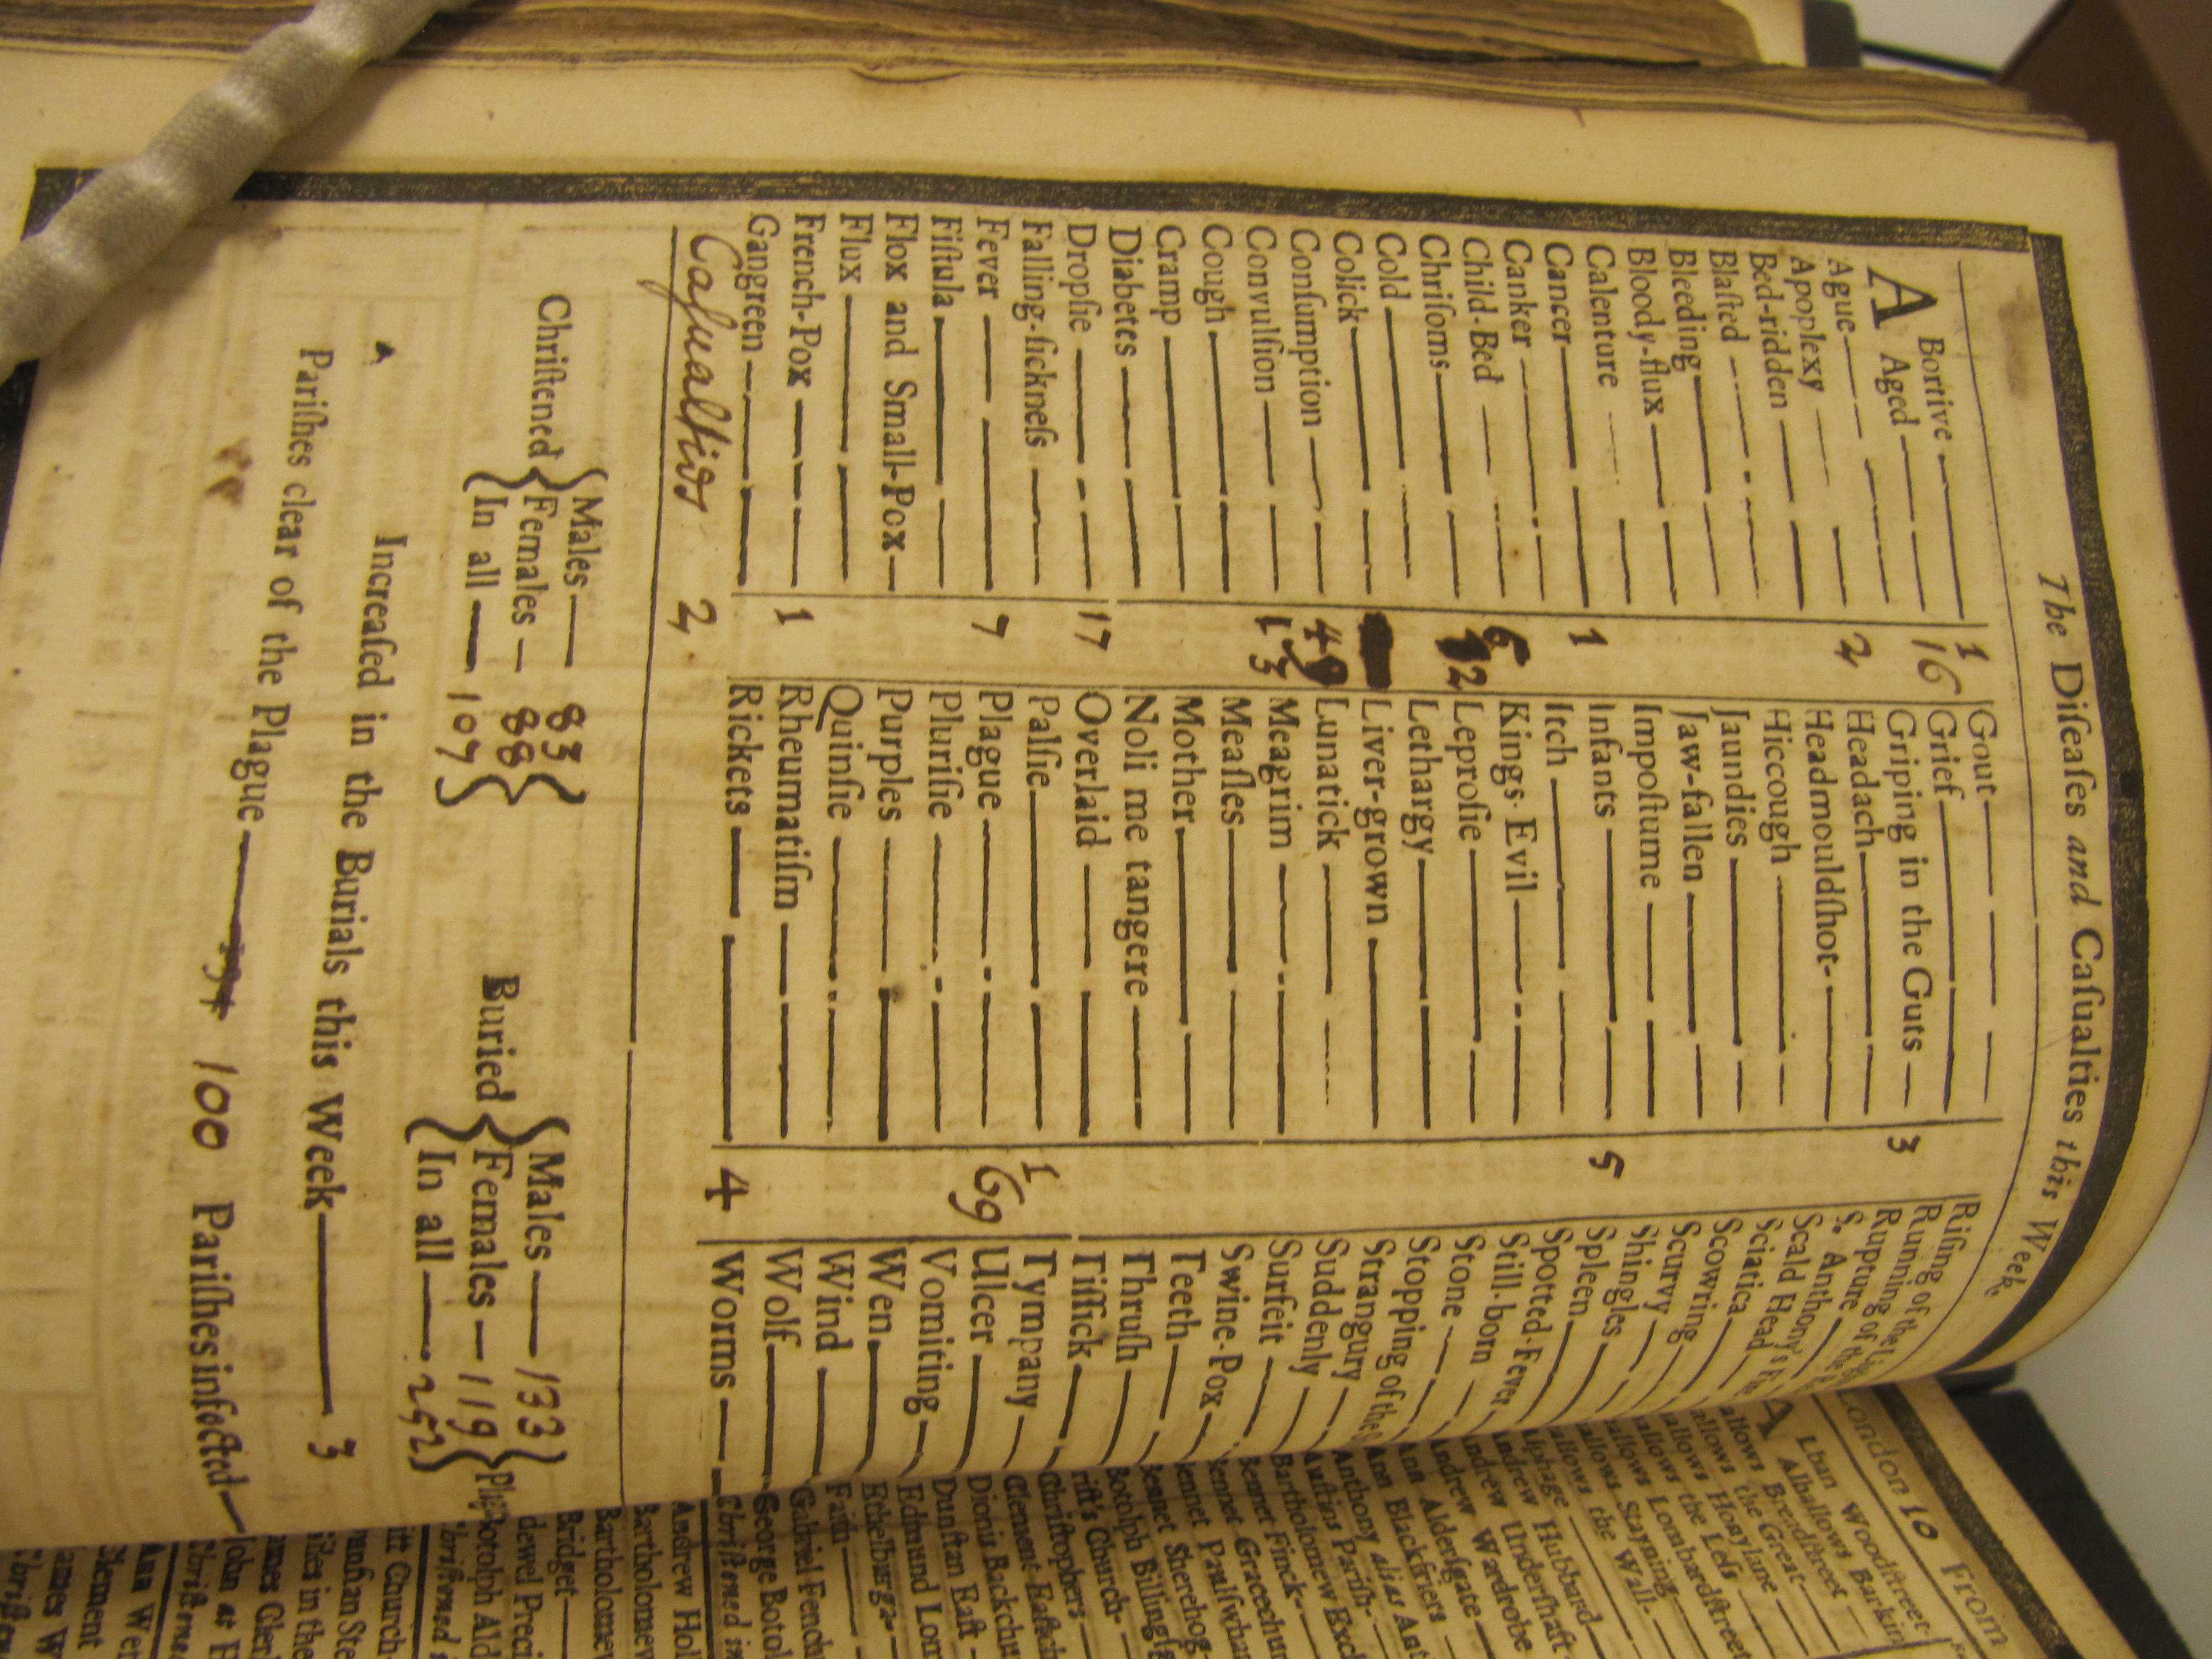 The Diseaſes and Caſualties this Week
ABortive 1
Aged 16
Ague
Apoplexy 2
Bed-ridden
Blaſted
Bleeding
Bloody-flux
Calenture
Cancer 1
Canker
Child-Bed 6
Chriſoms 12
Cold
Colick
Conſumption 49
Convulſion 13
Cough
Cramp
Diabetes
Dropſie 17
Falling-ſickneſs
Fever 7
Fiſtula
Flox and Small-Pox
Flux
French-Pox 1
Gangreen
Caſualties 2
Gout
Grief
Griping in the Guts 3
Headach
Headmouldſhot
Hiccough
Jaundies
Jaw-fallen
Impoſtume
Infants 5
Itch
Kings-Evil
Leproſie
Lethargy
Liver-grown
Lunatick
Meagrim
Meaſles
Mother
Noli me tangere
Overlaid
Palſie 1
Plague 69
Pluriſie
Purples
Quinſie
Rheumatiſm
Rickets 4
Riſing of the
Running of the
Rupture
S. Anthony's
Scald Head
Sciatica
Scowring
Scurvy
Shingles
Spleen
Spotted-Fever
Still-born
Stone
Stopping of the
Strangury
Suddenly
Surfeit
Swine-Pox
Teeth
Thruſh
Tiſſick
Tympany
Ulcer
Vomiting
Wen
Wind
Wolf
Worms
Chriſtened { Males 83 Females 88 In all 107 }
Buried { Males 133 Females 119 In all 252 }
Increaſed in the Burials this Week 3
Pariſhes clear of the Plague 100 Pariſhes infected
London 10 From
ALban Woodſtreet
Alhallows Barkin
Alhallows Breadſtreet
allows the Great
allows Honylane
allows the Leſs
allows Lombardſtreet
allows Stayning
allows the Wall
Alphage
Andrew Hubbard
Andrew Underſhaft
Andrew Wardrobe
Ann Alderſgate
Ann Blackfriers
Anthony alias Ant
Auſtins Pariſh
Bartholomew Exc
Bennet Finck
Bennet Gracechur
Bennet Paulſwhar
Bennet Sherehog
Botolph Billingſg
Chriſt's Church
Chriſtophers
Clement Eaſtch
Dionis Backchu
Dunſtan Eaſt
Edmund Lom
Ethelburga
Faith
Gabriel Fench
George Botol
Chriſtned in
Andrew Hol
Bartholomew
Bartholomew
Bridget
Botolph Ald